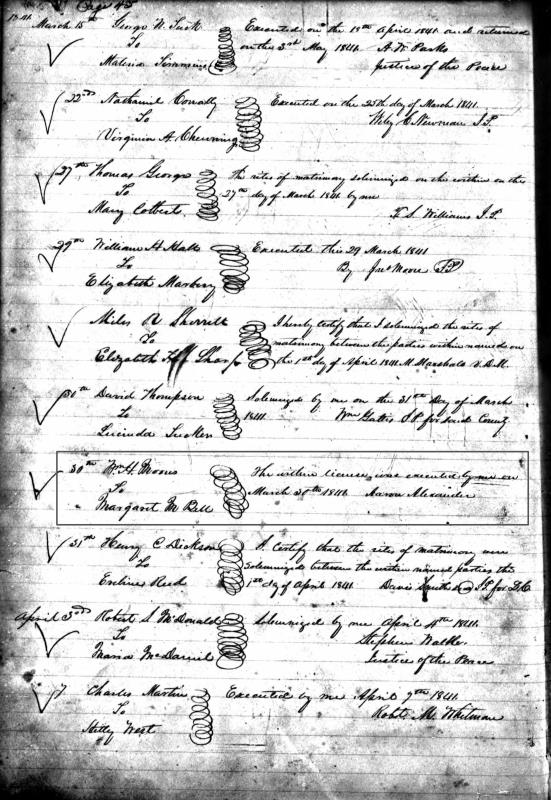 Page 45
1841.
March 15th George W. Tuck Executed on the 15th April 1841 and returned
To on the 3rd May 1841. A. W. Parks
Malinia Simmons Justice of the Peace
22nd Nathaniel Conally Executed on the 25th day of March 1841.
To Wiley C. Newman J.P.
Virginia A Chewning
27th Thomas George The rites of matrimony solemnized on the within on the
To 27th day of March 1841 by me
Mary Colbert. S. Williams J.P.
29th William A Hall Executed this 29 March 1841
To By Jno Moore JP
Elizabeth
Miles R Sherrill I hereby certify that I solemnized the rites of
To matrimony between the parties within named on
Elizabeth H Sharp the 1st day of April 1841. M. Marshall V.D.M.
30th David Thompson Solemnized by me on the 31st Day of March
To 1841. Wm Gattis J.P for said County
Lucinda Tucker
30th W. H. Moores The within license was executed by me on
To March 30th 1841. Aaron Alexander
Margaret M Bell
31st Henry C Dickson I certify that the rites of matrimony were
To Solemnized between the within named parties the
Eveline Reed 1st day of April 1841. Davis Smith J.P. for
April 3rd Robert S McDonald Solemnized by me April 4th 1841.
To Stephen Walker
Maria McDaniel Justice of the Peace
7 Charles Martin Executed by me April 9th 1841.
To Robt. M. Whitman
Hetty West